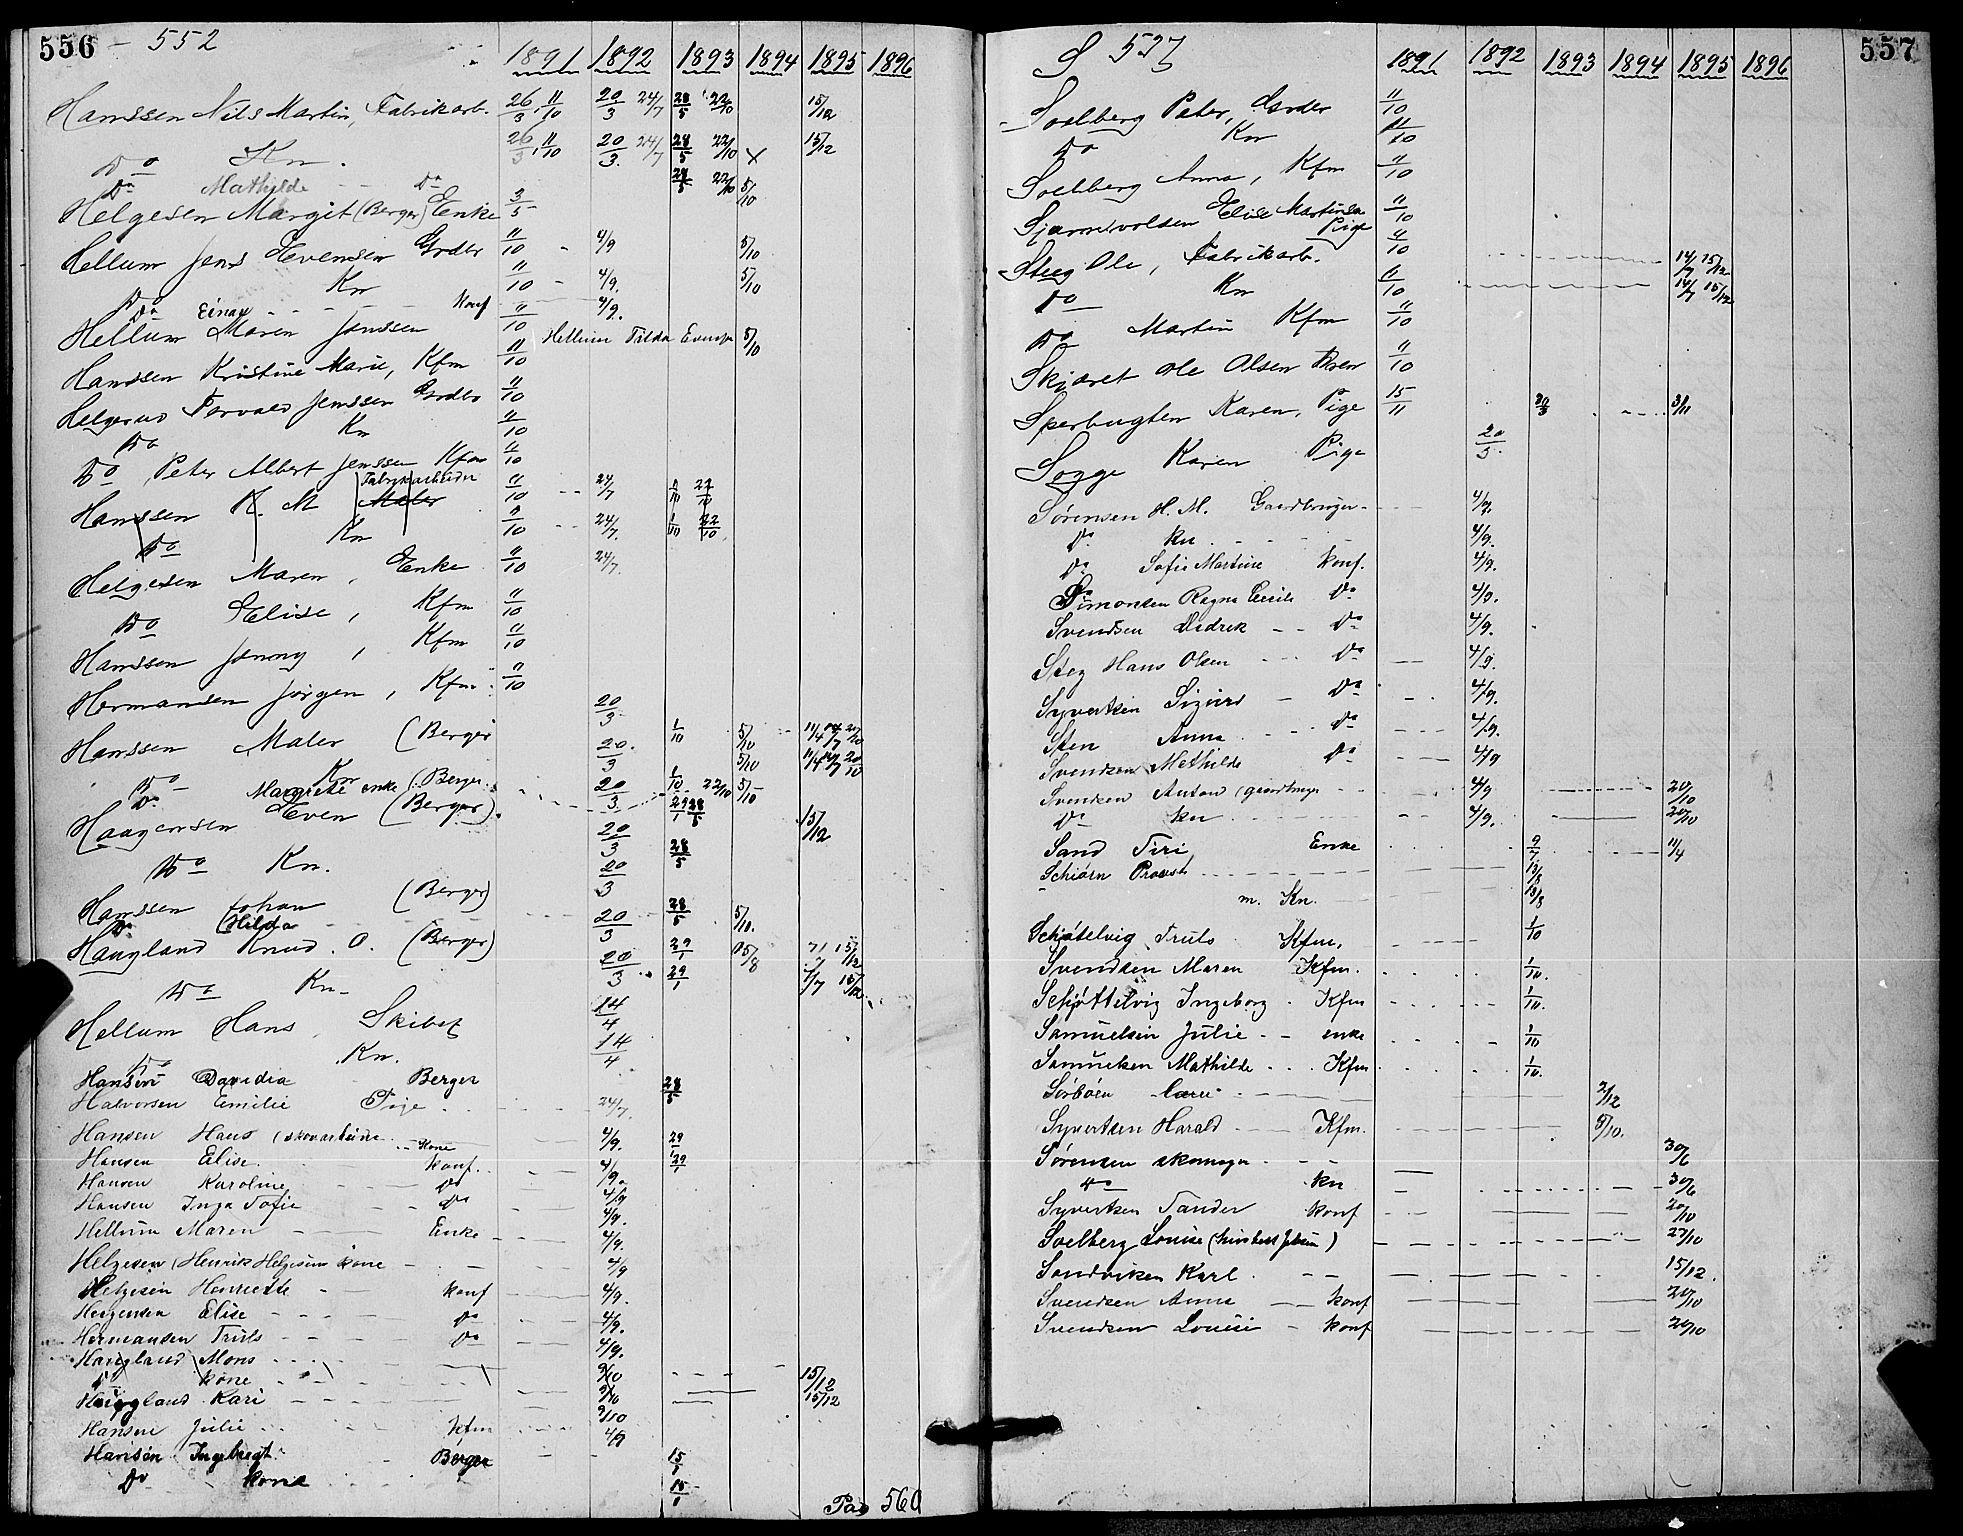 556 - 552
1891 1892 1893 1894 1895 1896
Hanssen Nils Martin, Fabrikarb. 26/3, 11/10 20/3 24/7 28/5 22/10 15/12
Do Kn. 26/3, 11/10 20/3. 24/7 28/5 22/10 x 15/12
Do Mathilde - - Do 28/5 22/10 5/10
Helgesen Margit (Berger) Enke 3/5
Hellum Jens Evensen Grdbr 11/10 - 4/9 5/10
Do Kn 11/10 - 4/9. 5/10
Do Einar - - - - konf 4/9.
Hellum Maren Jenssen 11/10 Hellum Tilda 5/10
Hanssen Kristine Marie, Kfm 11/10
Helgerud Torvald Jenssen Grdbr 11/10
Do Kn 11/10
Do, Peter Albert Jenssen Kfm 11/10
Fabrikarbeider
Hanssen K. M Maler 11/10 - - 24/7 1/10 22/10
Do Kn 11/10 - - 24/7. 1/10 22/10
Helgesen Maren, Enke 11/10 24/7.
Do Elise, Kfm 11/10
Hanssen Jenny, Kfm 11/10
Hermansen Jørgen, Kfm 11/10
Hanssen Maler (Berger 20/3. 1/10 5/10 11/4 14/7 20/10
Do Kn (Berger 20/3. 1/10 5/10 11/4 14/7 20/10
Do Margrete enke 20/3 22/10 5/10
Haagensen Even (Berger). 20/3 29/1 28/5 15/12
Do Kn. 20/3 28/5
Hanssen Johan (Berger)
Do Hilda 20/3 28/5 5/10.
Haugland Knud. O. (Berger) 20/3 29/1 15/8 7/7 15/12
Do Kn- 29/1 7/7 15/12
Hellum Hans, Skibst 14/4
Do Kn. 14/4
Hansen Davidia Berger 28/5
Halvorsen Emilie Pige 24/7.
Hansen Hans (skovarbeider - - 4/9. 29/1
Hansen Elise. - - Kone 29/1
Hansen Karoline konf. 4/9.
Hansen Inga Sofie Do 4/9
Do 4/9.
Hellum Maren Enke 4/9.
Helgesen (Henrik Helgesens kone - . - 4/9
Helgesen Henriette - - konf 4/9.
Helgesen Elise - - Do 4/9.
Hermansen Truls - - Do 4/9.
Haugland Mons 9/10 15/12
Do kone 9/10 15/12
Haugland Kari 9/10
Hansen Julie Kfm 4/9
Hansen Ingebregt Berger 15/1
Do kone 15/1
Pag 560
S 537
557
1891 1892 1893 1894 1895 1896
Soelberg Peter, Grdbr 11/10
Do Kn 11/10
Soelberg Anna, Kfm 11/10
Elise Martinsen Pige 11/10
Steg Ole, Fabrikarb. 11/10 14/7 15/12
Do Kn 11/10 14/7 15/12
Do Martin Kfm 11/10
Skjæret Ole Olsen 11/10
Sperbugten Karen, Pige 15/11 30/3 3/11
Sogge Karen Pige 20/5.
Sørensen H. M. Gaardbruger- 4/9.
Do kn - - - 4/9.
Do Sofie Martine konf. 4/9.
Simonsen Ragna Cecilie Do 4/9.
Svendsen Didrek - - Do 4/9.
Steg Hans Olsen - - - Do 4/9.
Syvertsen Sigurd - Do 4/9.
Sten Anna - - - Do 4/9.
Svendsen Methilde Do 4/9
Svendsen Anton (gaardbruger 4/9 20/10
Do kn 4/9. 20/10
Sand Siri Enke 9/7 11/4
Schiørn Provst 13/8
m. Kn. 13/8
Schjøtelvig Truls Kfm, 1/10
Svendsen Maren Kfm. 1/10.
Schjøttelvig Ingeborg . Kfm 1/10.
Samuelsen Julie - - enke 1/10
Samuelsen Mathilde . . . Kfm 1/10.
Sørbøen 2/12
Syvertsen Harald - - Kfm. 5/10.
Sørensen skomager - - - 30/6
Do kn 30/6
Syvertsen Sander konf 20/10
Soelberg Louise 27/10
Sandviken Karl - - 15/12.
Svendsen Anna - - konf 20/10
Svendsen Louise - konf 20/10